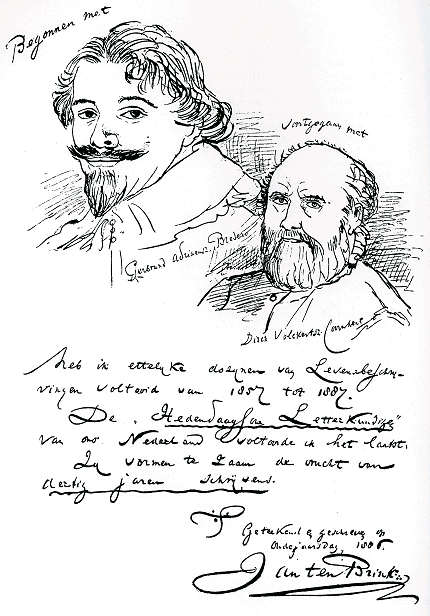 Begonnen met
voortgegaan met
Gerbrand Adriaensz. Bredero
Dirck Volckertsz. Cornhert
heb ik ettelyke dozynen van Levensbeschry-
vingen voltooid van 1857 tot 1887.
De „Hedendaagsche Letterkundige"
van ons Nederland voltooide ik het laatst.
Zy vormen te zaam de vrucht van
dertig jaren schryvens.
Geteekend & geschreven op
Oudejaarsdag, 1886.
Jan ten Brink